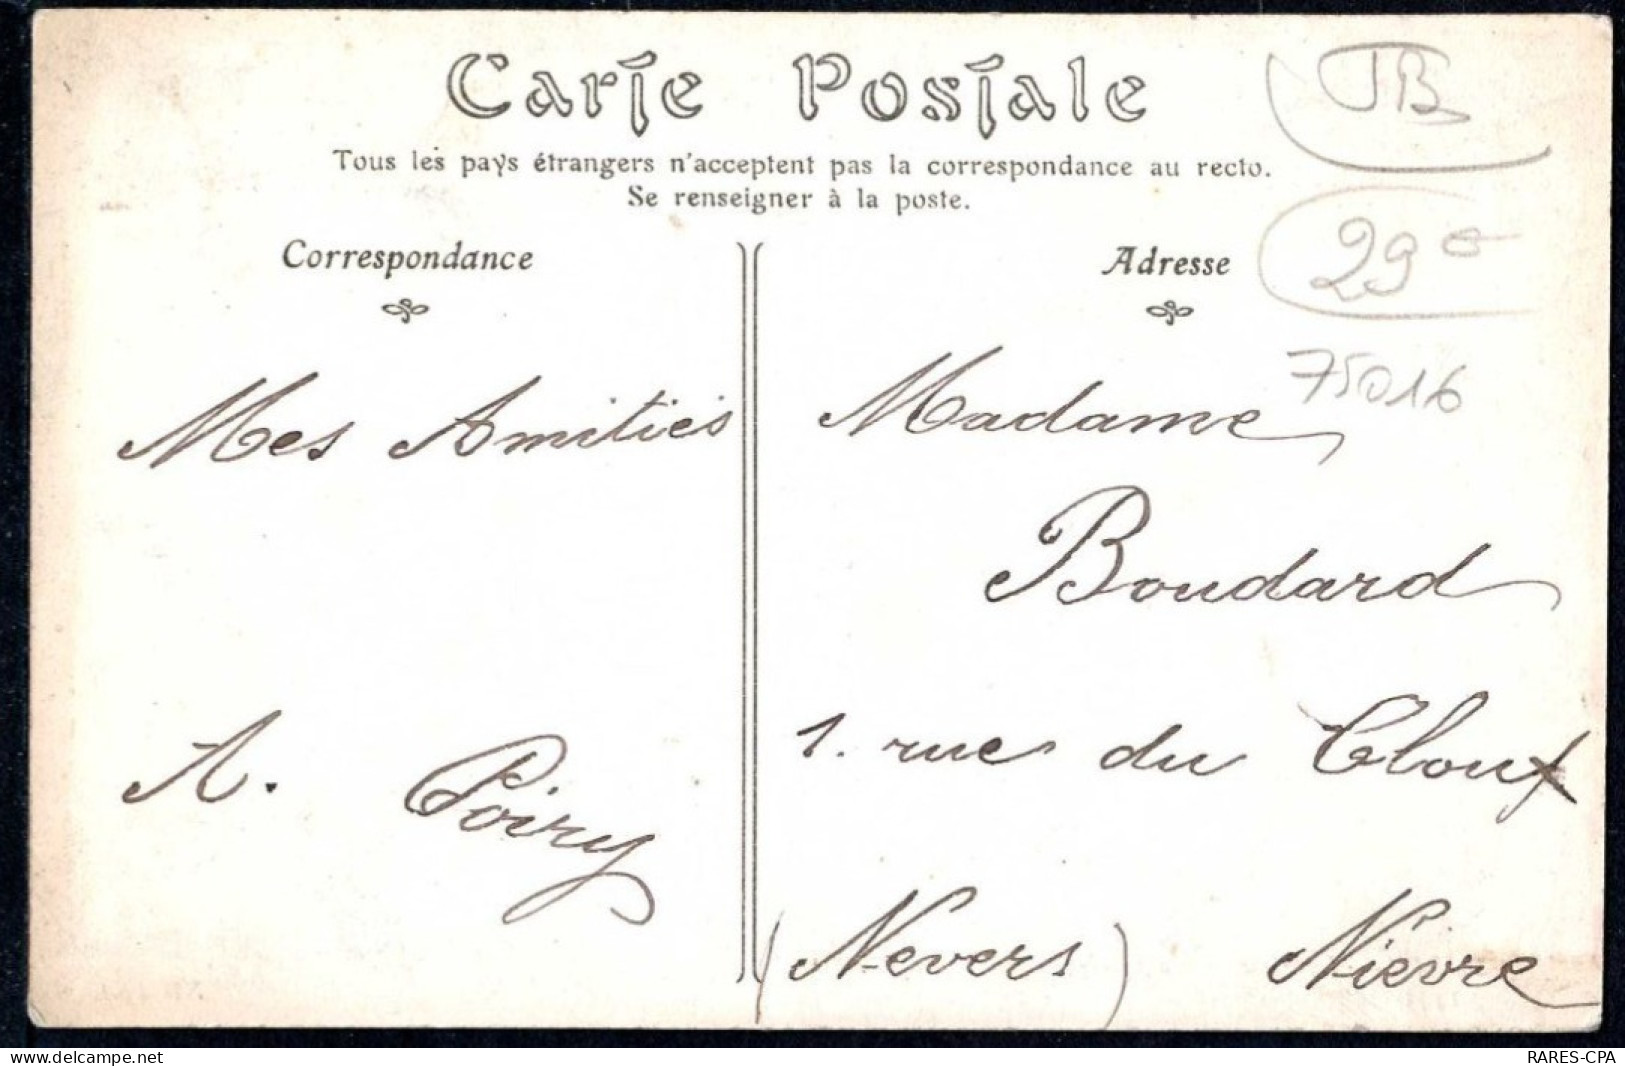 Carte Postale
Tous les pays étrangers n'acceptent pas la correspondance au recto.
Se renseigner à la poste.
Correspondance
Mes Amitiés
A. Poiry
Adresse
Madame
Boudard
1. rue du Clouf
(Nevers) Nièvre
JB
29€
75016
delcampe.net
RARES-CPA